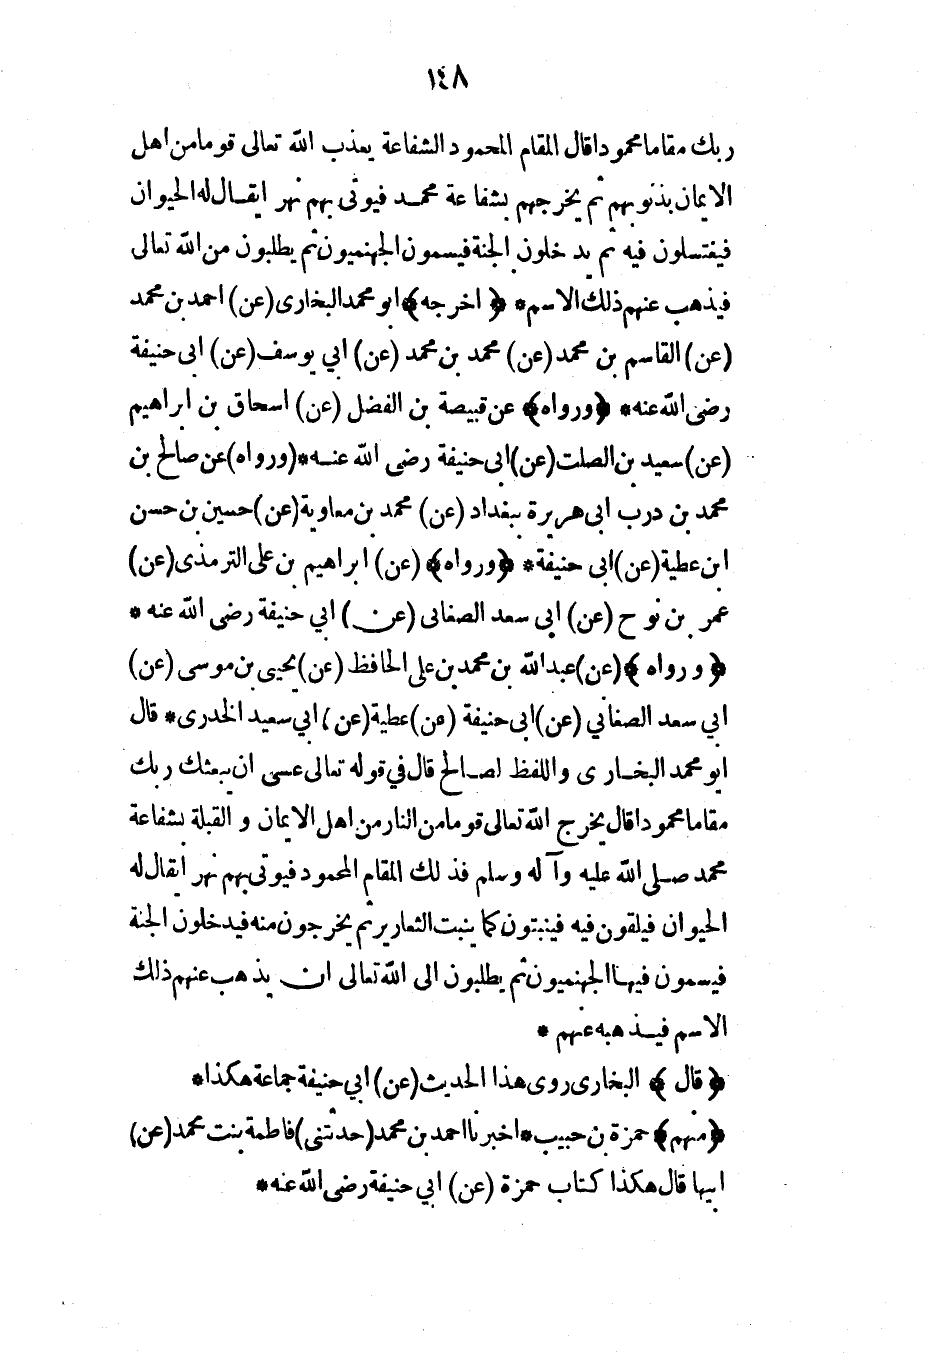 ١٤٨
ربك مقاما محمودا قال المقام المحمود الشفاعة يعذب الله تعالى قوما من اهل
الايمان بذنوبهم ثم يخرجهم بشفاعة محمد فيوتى بهم نهرا يقال له الحيوان
فيغتسلون فيه ثم يدخلون الجنة فيسمون الجهنميون ثم يطلبون من الله تعالى
فيذهب عنهم ذلك الاسم * ﴿ اخرجه ﴾ ابو محمد البخارى (عن) احمد بن محمد
(عن) القاسم بن محمد (عن) محمد بن محمد (عن) ابي يوسف (عن) ابى حنيفة
رضى الله عنه * ﴿ ورواه ﴾ عن قبيصة بن الفضل (عن) اسحاق بن ابراهيم
(عن) سعيد بن الصلت (عن) ابى حنيفة رضى الله عنه * (ورواه) عن صالح بن
محمد بن درب ابى هريرة ببغداد (عن) محمد بن معاوية (عن) حسين بن حسن
ابن عطية (عن) ابى حنيفة * ﴿ ورواه ﴾ (عن) ابراهيم بن على الترمذى (عن)
عمر بن نوح (عن) ابى سعد الصغانى (عن) ابي حنيفة رضى الله عنه *
﴿ ورواه ﴾ (عن) عبدالله بن محمد بن على الحافظ (عن) يحيى بن موسى (عن)
ابي سعد الصغاني (عن) ابى حنيفة (عن) عطية (عن) ابي سعيد الخدرى * قال
ابو محمد البخارى واللفظ لصالح قال في قوله تعالى عسى ان يبعثك ربك
مقاما محمودا قال يخرج الله تعالى قوما من النار من اهل الايمان و القبلة بشفاعة
محمد صلى الله عليه وآله وسلم فذلك المقام المحمود فيوتى بهم نهرا يقال له
الحيوان فيلقون فيه فينبتون كما ينبت الثعارير ثم يخرجون منه فيدخلون الجنة
فيسمون فيها الجهنميون ثم يطلبون الى الله تعالى ان يذهب عنهم ذلك
الاسم فيذهبه عنهم *
﴿ قال ﴾ البخارى روى هذا الحديث (عن) ابي حنيفة جماعة هكذا *
﴿ منهم ﴾ حمزة بن حبيب * اخبرنا احمد بن محمد (حدثنى) فاطمة بنت محمد (عن)
ابيها قال هكذا كتاب حمزة (عن) ابي حنيفة رضى الله عنه *